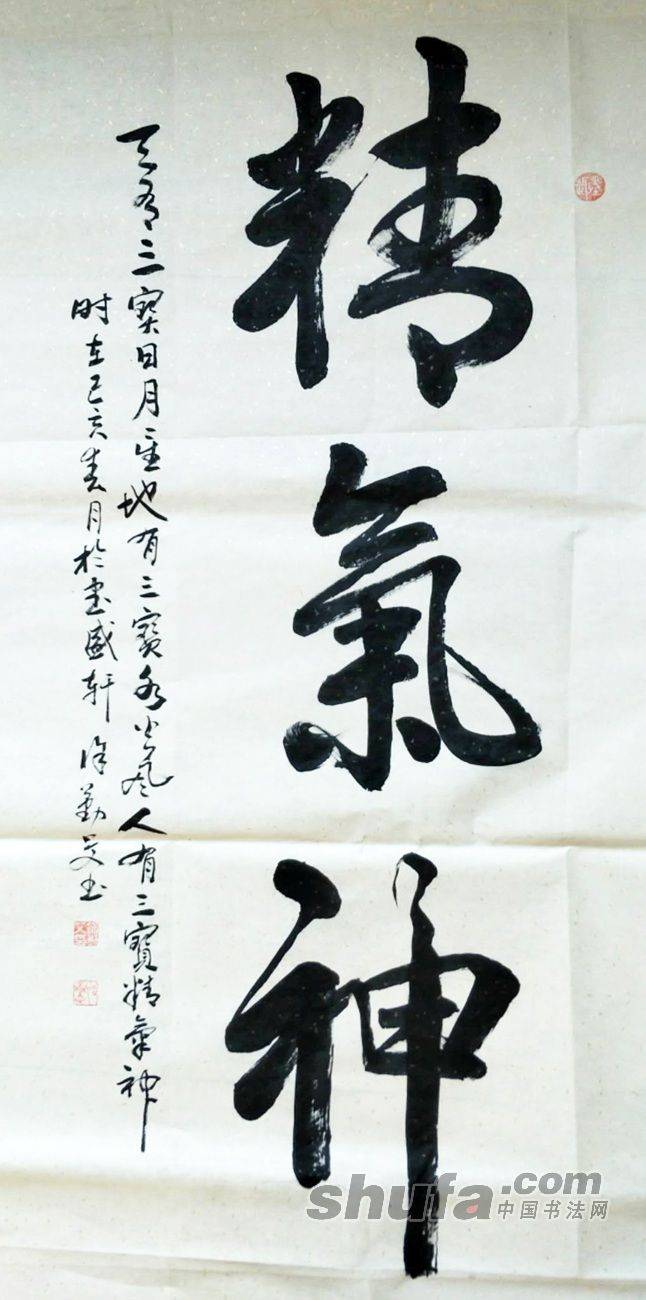 精氣神
天有三寶日月星地有三寶水火風人有三寶精氣神
时在己亥春月於墨盛轩徐勤书
shufa.com
中国书法网